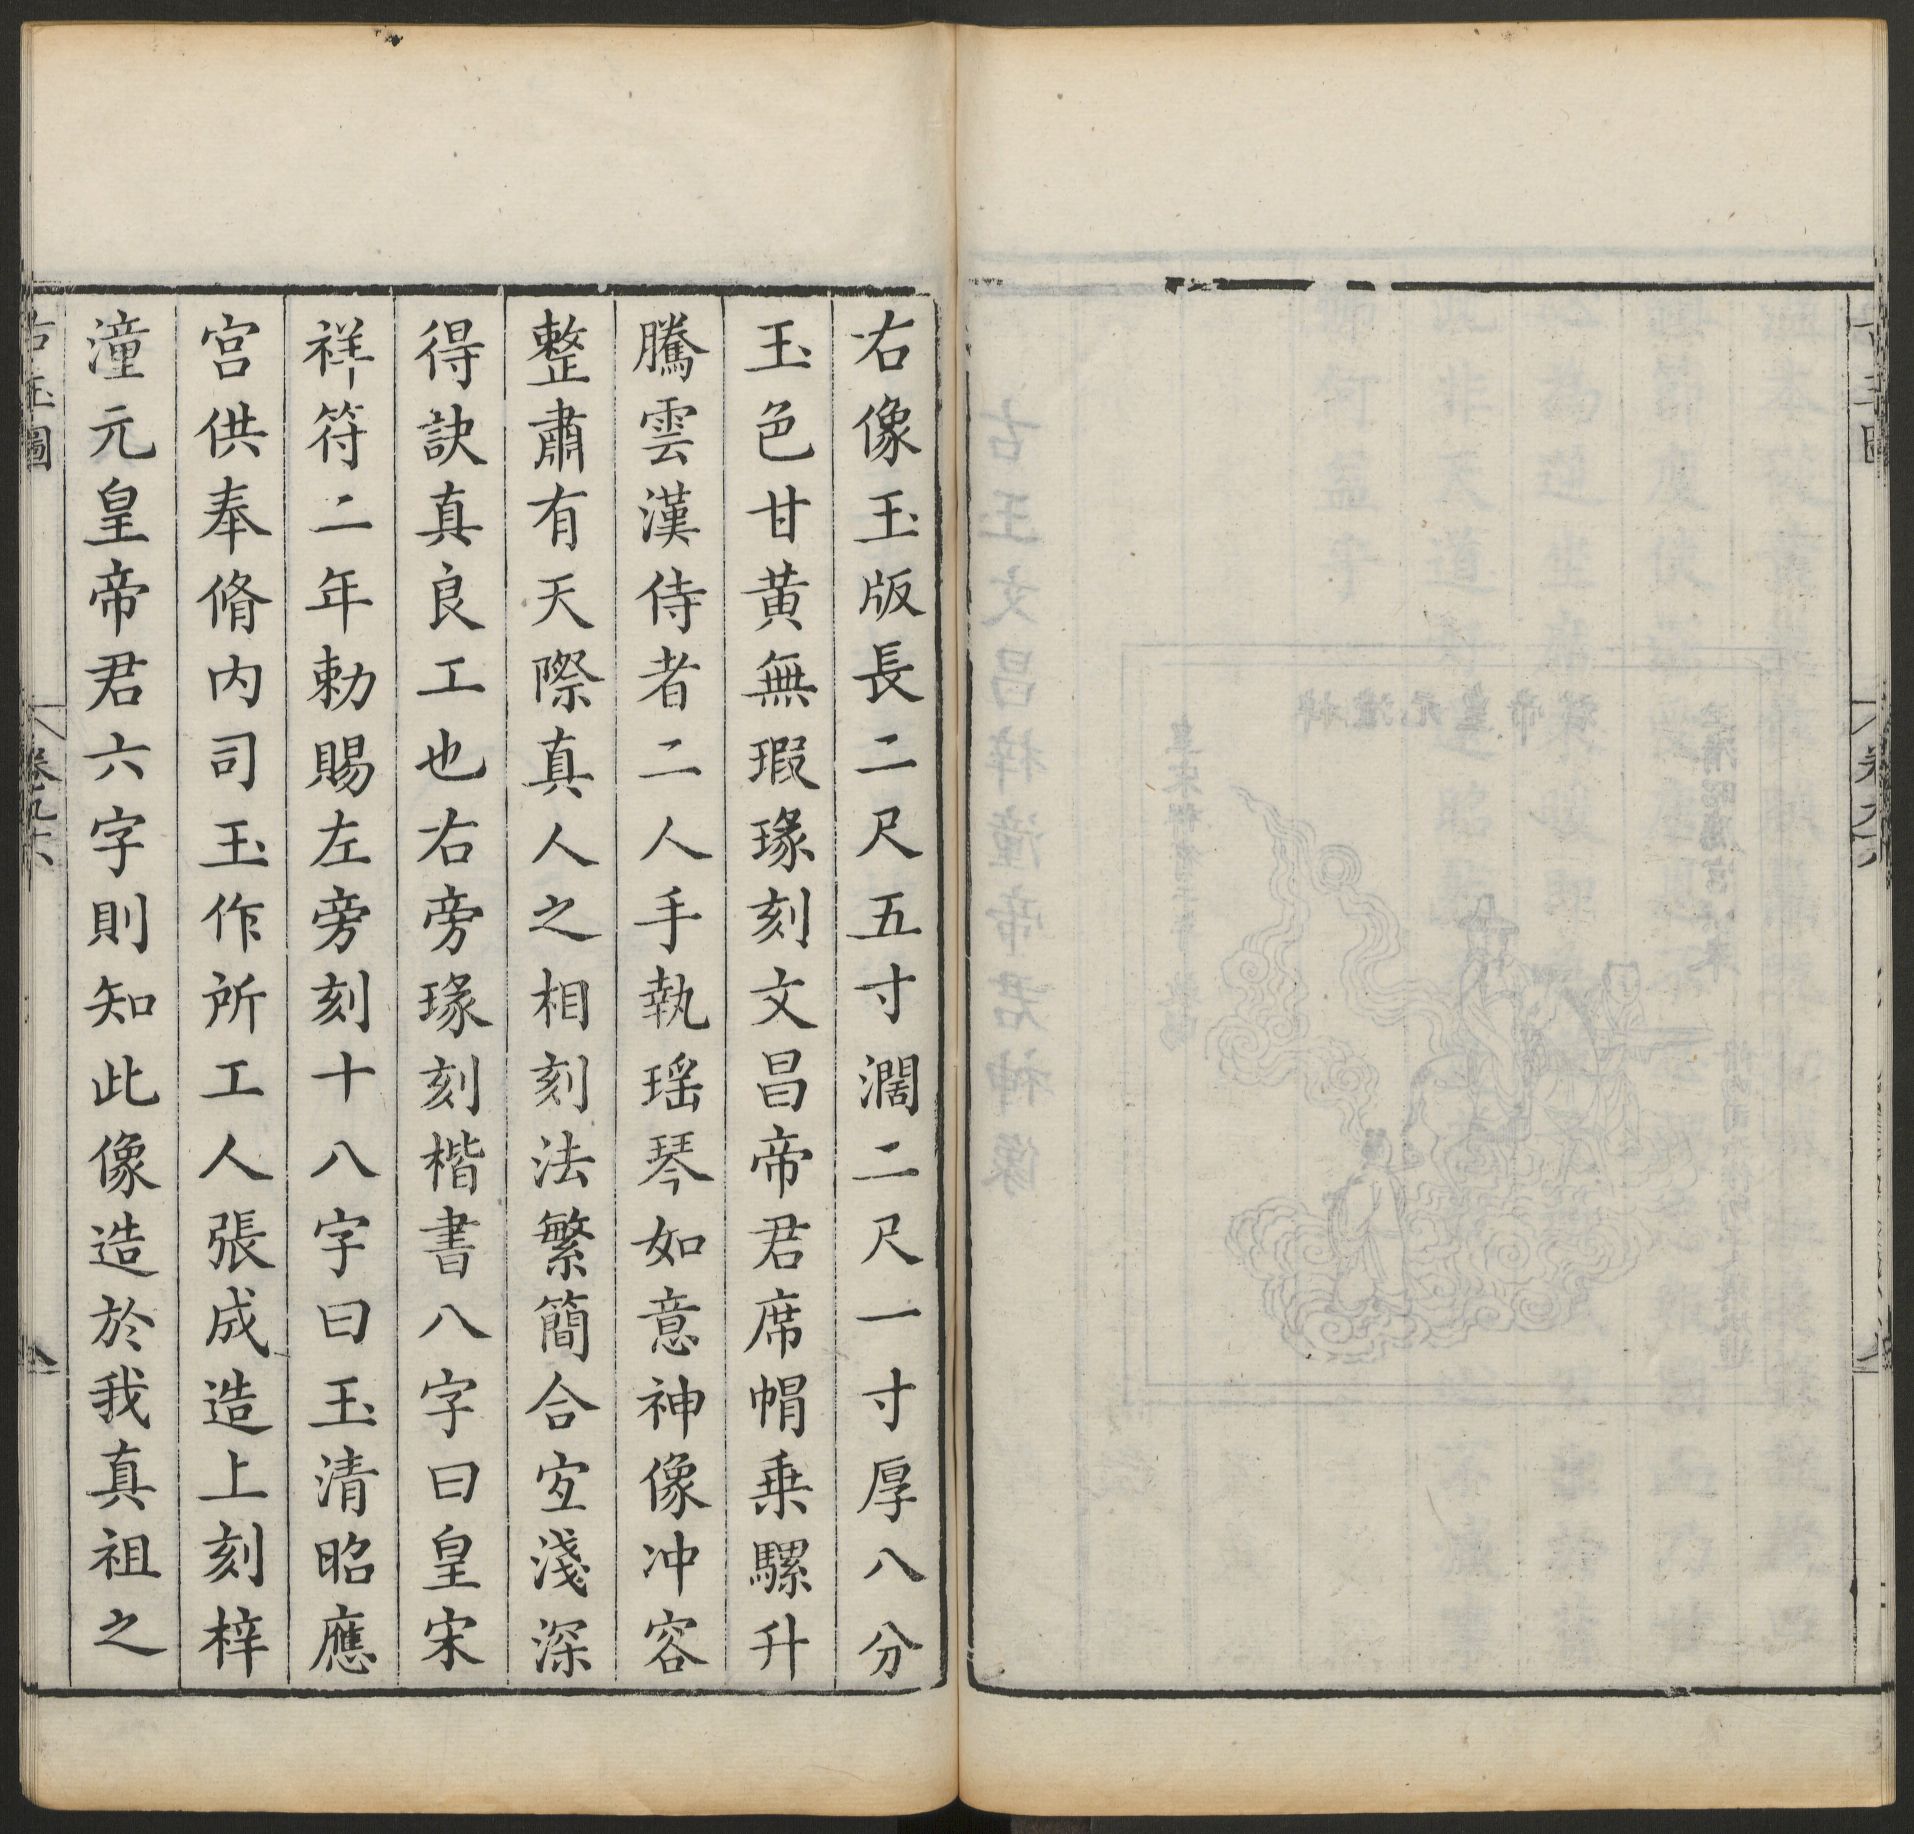 右像玉版長二尺五寸濶二尺一寸厚八分
玉色甘黄無瑕瑑刻文昌帝君席帽乗騾升
騰雲漢侍者二人手執瑶琴如意神像冲容
整肅有天際真人之相刻法繁簡合宐淺深
得訣真良工也右旁瑑刻楷書八字曰皇宋
祥符二年勅賜左旁刻十八字曰玉清昭應
宫供奉脩内司玉作所工人張成造上刻梓
潼元皇帝君六字則知此像造於我真祖之
古玉圖